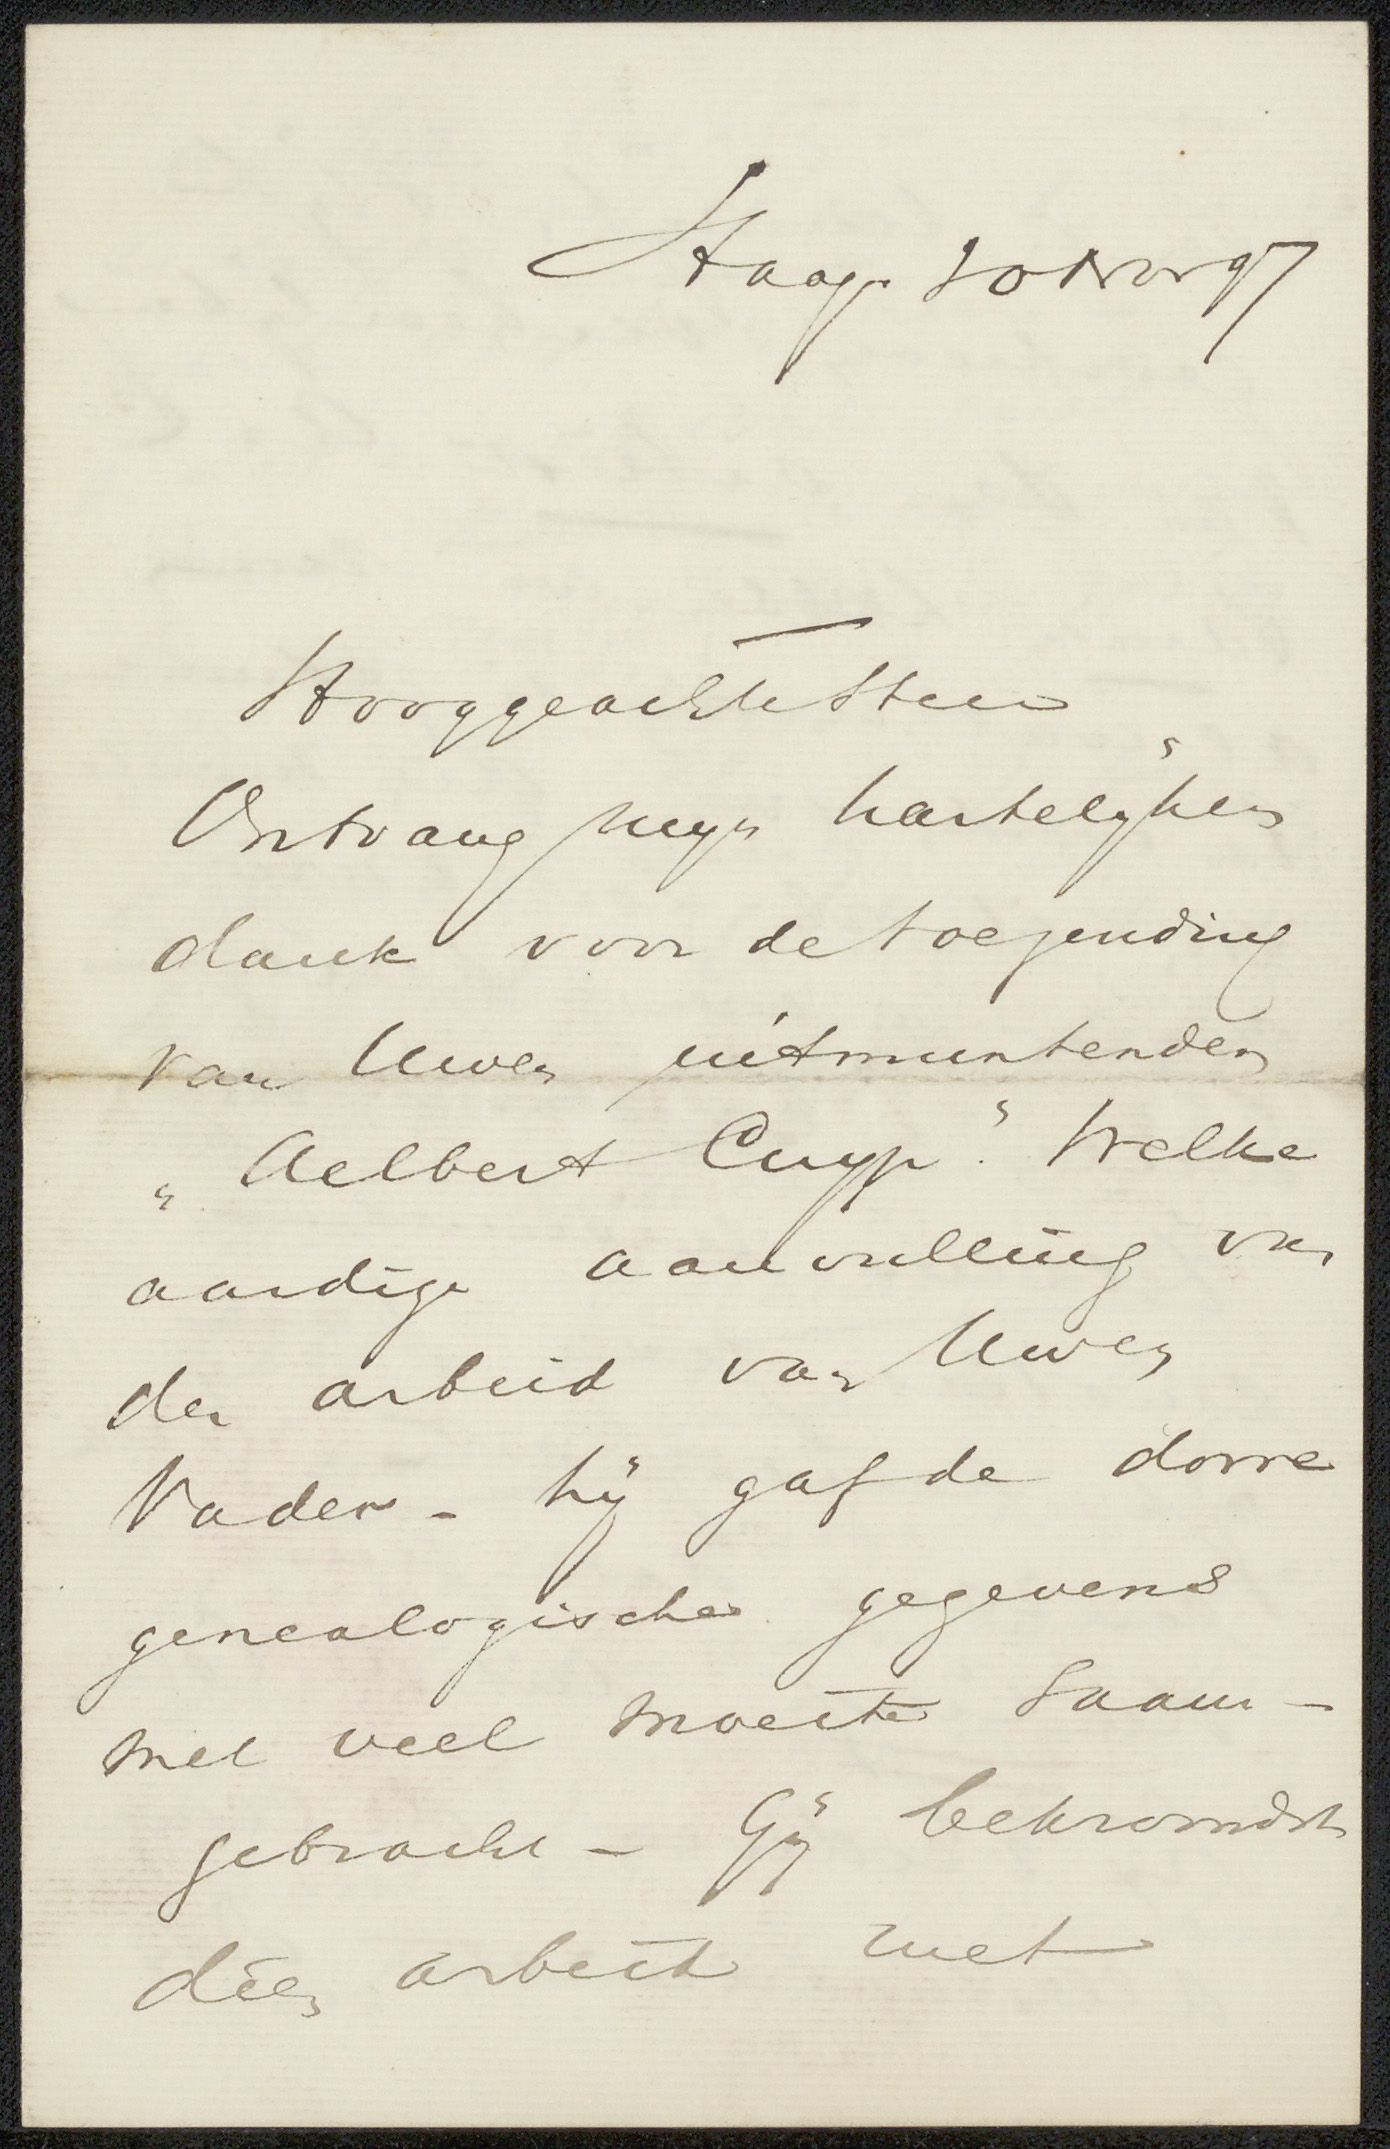 Haag. 30 Nov 97
Hooggeachte Heer
Ontvang mijn hartelijken
dank voor de toezending
van Uwen uitmuntenden
„Aelbert Cuyp". Welke
aardige aanvulling van
den arbeid van Uwen
Vader - hij gaf de dorre
genealogische gegevens
met veel moeite saam-
gebracht - Gij bekroondet
dien arbeid met